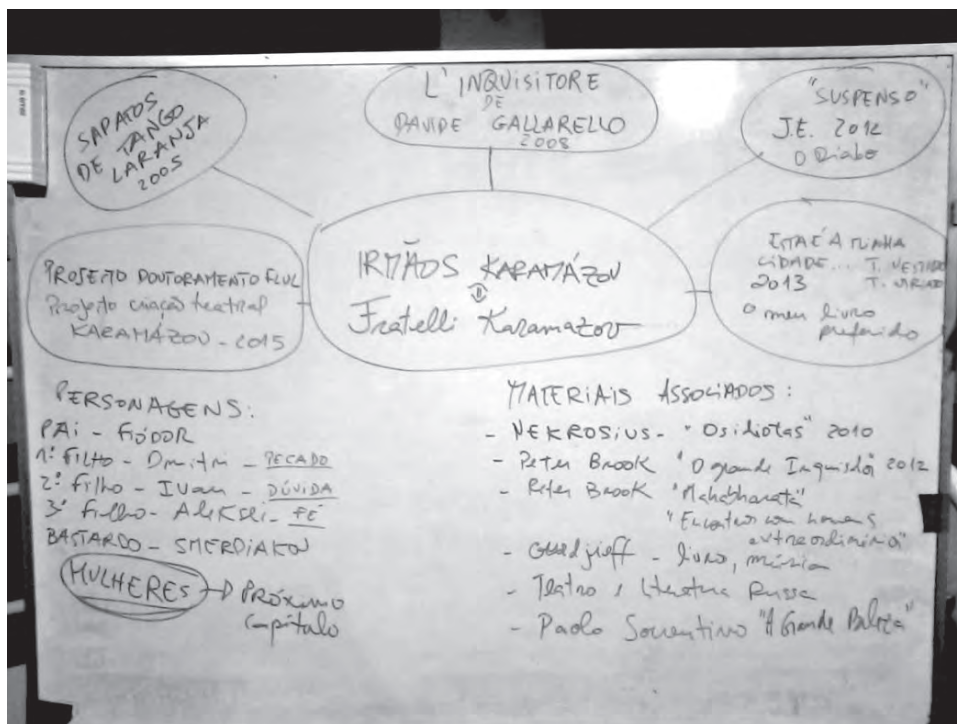 SAPATOS
DE TANGO
LARANJA
2005
L'INQUISITORE
DE
DAVIDE GALLARELLO
2008
"SUSPENSO"
J.E. 2012
O Diabo
PROJETO DOUTORAMENTO FLUL
Projeto criação teatral
KARAMÁZOV - 2015
IRMÃOS KARAMÁZOV
Fratelli Karamazov
ESTA É A MINHA
CIDADE... T. MERIDIONAL
2013
o meu livro
preferido
PERSONAGENS:
PAI - FIÓDOR
1º FILHO - Dmitri - PECADO
2º Filho - IVAN - DÚVIDA
3º Filho - Aleksei - FÉ
BASTARDO - SMERDIAKOV
MULHERES → PRÓXIMO
Capítulo
MATERIAIS ASSOCIADOS:
- NEKROSIUS - "Os idiotas" 2010
- Peter Brook "O grande Inquisidor" 2012
- Peter Brook "Mahabharata"
"Encontros com homens
extraordinários"
- Gurdjieff - livro, música
- Teatro e Literatura Russa
- Paolo Sorrentino "A Grande Beleza"